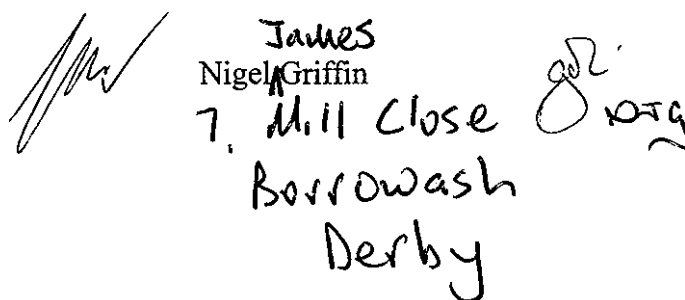 James
Nigel Griffin
7. Mill Close
Borrowash
Derby